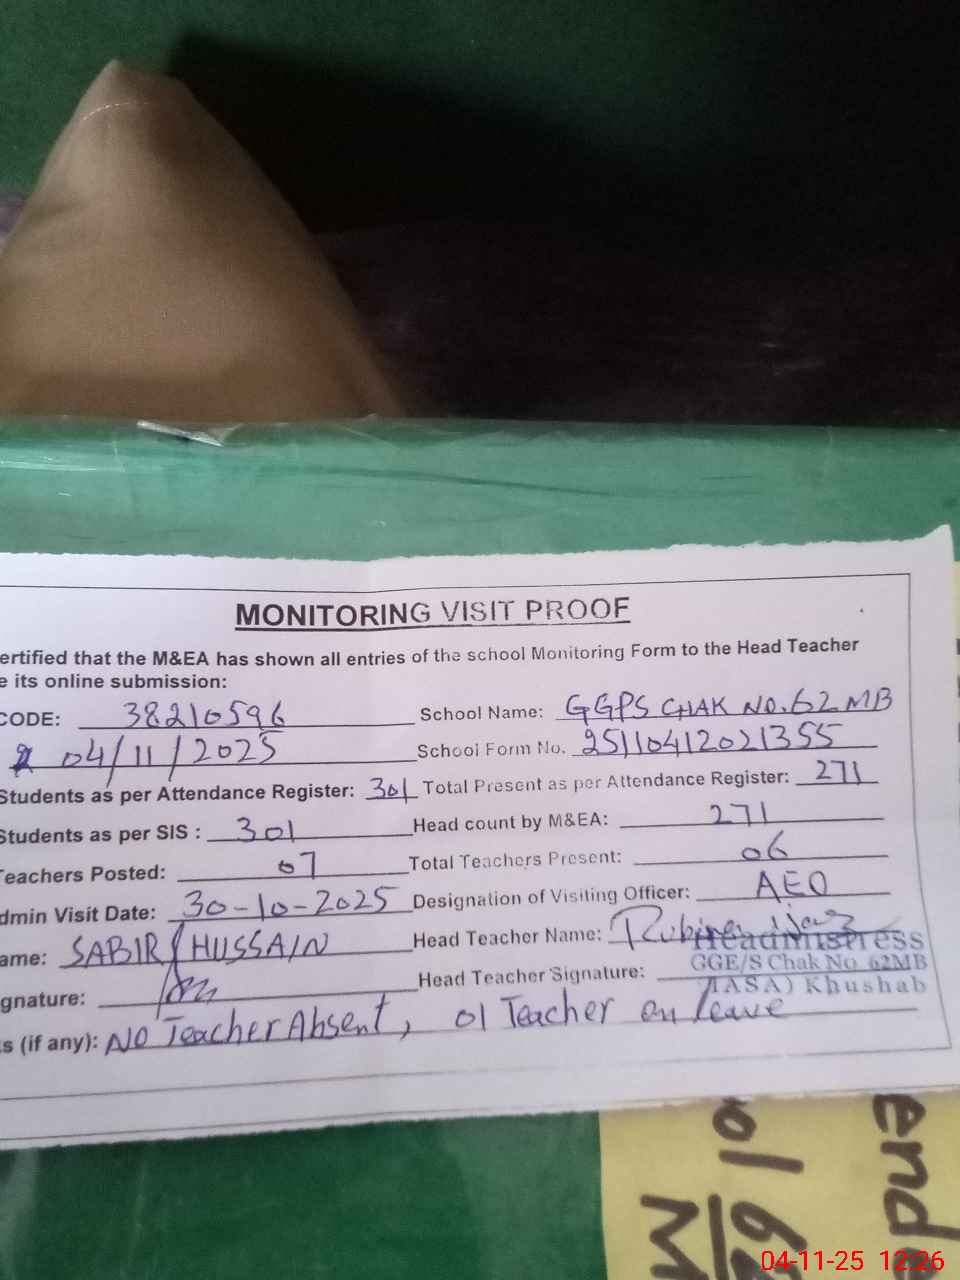 MONITORING VISIT PROOF
ertified that the M&EA has shown all entries of the school Monitoring Form to the Head Teacher
e its online submission:
CODE: 38210596 School Name: GGPS CHAK NO. 62 MB
04/11/2025 School Form No. 25110412021355
Students as per Attendance Register: 301 Total Present as per Attendance Register: 271
Students as per SIS : 301 Head count by M&EA: 271
Teachers Posted: 07 Total Teachers Present: 06
dmin Visit Date: 30-10-2025 Designation of Visiting Officer: AEO
ame: SABIR HUSSAIN Head Teacher Name: Rubina
Headmistress
gnature: Head Teacher Signature:
GGE/S Chak No. 62MB
(IASA) Khushab
s (if any): No Teacher Absent, 01 Teacher on leave
end
ol 62
M
04-11-25 12:26